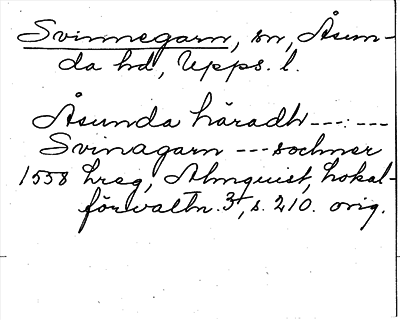 Svinnegarn, sn, Åsun-
da hd, Upps. l.
Åsunda häradh --- : ---
Svinagarn --- sochner
1558 hreg, Almquist, Lokal-
förvaltn. 3, s. 210. orig.